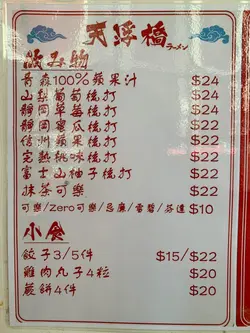 天浮橋
ラーメン
飲み物
青森100%蘋果汁 $24
山梨葡萄梳打 $24
靜岡草莓梳打 $24
靜岡蜜瓜梳打 $22
信州蘋果梳打 $22
宅熱桃味梳打 $22
富士山柚子梳打 $22
抹茶可樂 $22
可樂/Zero可樂/忌廉/雪碧/芬達 $10
小食
餃子3/5件 $15/$22
雞肉丸子4粒 $20
蔬餅4件 $20